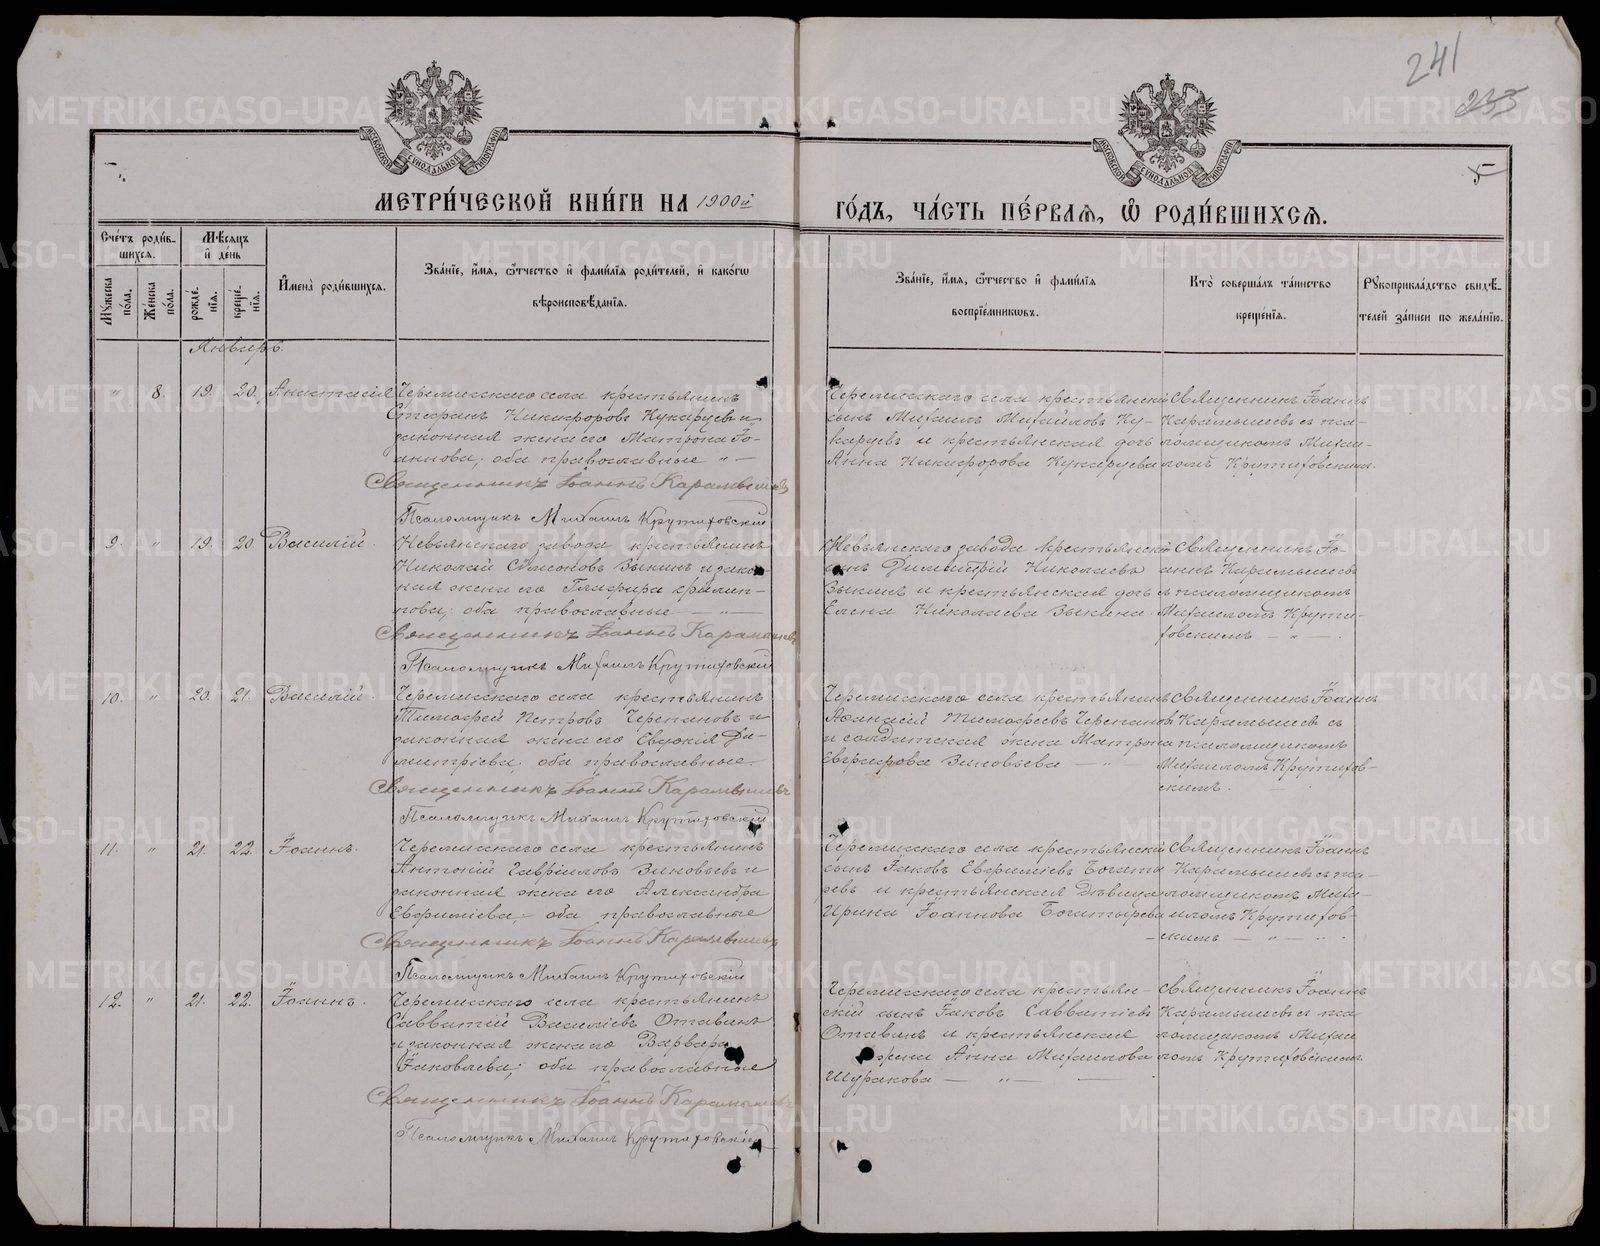 241
235
МОСКОВСКОЙ СѴНОДАЛЬНОЙ ТИПОГРАФІИ
МОСКОВСКОЙ СѴНОДАЛЬНОЙ ТИПОГРАФІИ
5
МЕТРИ́ЧЕСКОЙ КНИ́ГИ НА 1900й
ГО́ДЪ, ЧА́СТЬ ПЕ́РВАѦ, Ѡ҆ РОДИ́ВШИХСѦ.
Сче́тъ роди́в-
шихсѧ.
Мꙋ́жеска
по́ла.
Же́нска
по́ла.
Мѣ́сѧцъ
и҆ де́нь
рожде́-
нїѧ.
креще́-
нїѧ.
И҆мена̀ роди́вшихсѧ.
Зва́нїе, и҆́мѧ, ѻ҆́тчество и҆ фами́лїѧ роди́телей, и҆ како́гѡ
вѣроисповѣ́данїѧ.
Зва́нїе, и҆́мѧ, ѻ҆́тчество и҆ фами́лїѧ
воспрїе́мникѡвъ.
Кто̀ соверша́лъ та́инство
креще́нїѧ.
Рꙋкоприкла́дство свидѣ́-
телей за́писи по жела́нїю.
Январь.
" 8. 19. 20. Анастасія
Черемисскаго села крестьянинъ
Стефанъ Никифоровъ Кукаруевъ и
законная жена его Матрона Іо-
аннова; оба православные " —
Священникъ Іоаннъ Карамышевъ
Псаломщикъ Михаилъ Крутиховскій
Черемисскаго села крестьянскій
сынъ Михаилъ Михайловъ Ку-
каруевъ и крестьянская дочь
Анна Никифорова Кукаруева
Священникъ Іоаннъ
Карамышевъ съ пса-
ломщикомъ Михаи-
ломъ Крутиховскимъ.
9. " 19. 20. Василій.
Невьянскаго завода крестьянинъ
Николай Сѵмеоновъ Зыкинъ и закон-
ная жена его Глафира Филип-
пова; оба православные — " —
Священникъ Іоаннъ Карамышевъ
Псаломщикъ Михаилъ Крутиховскій
Невьянскаго завода крестьянскій
сынъ Димитрій Николаевъ
Зыкинъ и крестьянская дочь
Елена Николаева Зыкина.
Священникъ Іо-
аннъ Карамышевъ
съ псаломщикомъ
Михаиломъ Крути-
ховскимъ — " — .
10. " 20. 21. Василій.
Черемисскаго села крестьянинъ
Тимофей Петровъ Черепановъ и
законная жена его Евдокія Ди-
митріева; оба православные —
Священникъ Іоаннъ Карамышевъ
Псаломщикъ Михаилъ Крутиховскій
Черемисскаго села крестьянинъ
Аѳанасій Тимофеевъ Черепановъ
и солдатская жена Матрона
Евграфова Зиновьева — " —
Священникъ Іоаннъ
Карамышевъ съ
псаломщикомъ
Михаиломъ Крутихов-
скимъ.
11. " 21. 22. Іоаннъ.
Черемисскаго села крестьянинъ
Антоній Гавріиловъ Зиновьевъ и
законная жена его Александра
Евфиміева, — оба православные
Священникъ Іоаннъ Карамышевъ
Псаломщикъ Михаилъ Крутиховскій
Черемисскаго села крестьянскій
сынъ Іаковъ Евфиміевъ Богаты-
ревъ и крестьянская дѣвица
Ирина Іоаннова Богатырева
Священникъ Іоаннъ
Карамышевъ съ пса-
ломщикомъ Миха-
иломъ Крутихов-
скимъ — " —
12. " 21. 22. Іоаннъ.
Черемисскаго села крестьянинъ
Савватій Василіевъ Отавинъ
и законная жена его Варвара
Іаковлева; оба православные
Священникъ Іоаннъ Карамышевъ
Псаломщикъ Михаилъ Крутиховскій
Черемисскаго села крестьян-
скій сынъ Іаковъ Савватіевъ
Отавинъ и крестьянская
жена Анна Михаилова
Шуракова — " —
Священникъ Іоаннъ
Карамышевъ съ пса-
ломщикомъ Михаи-
ломъ Крутиховскимъ
METRIKI.GASO-URAL.RU